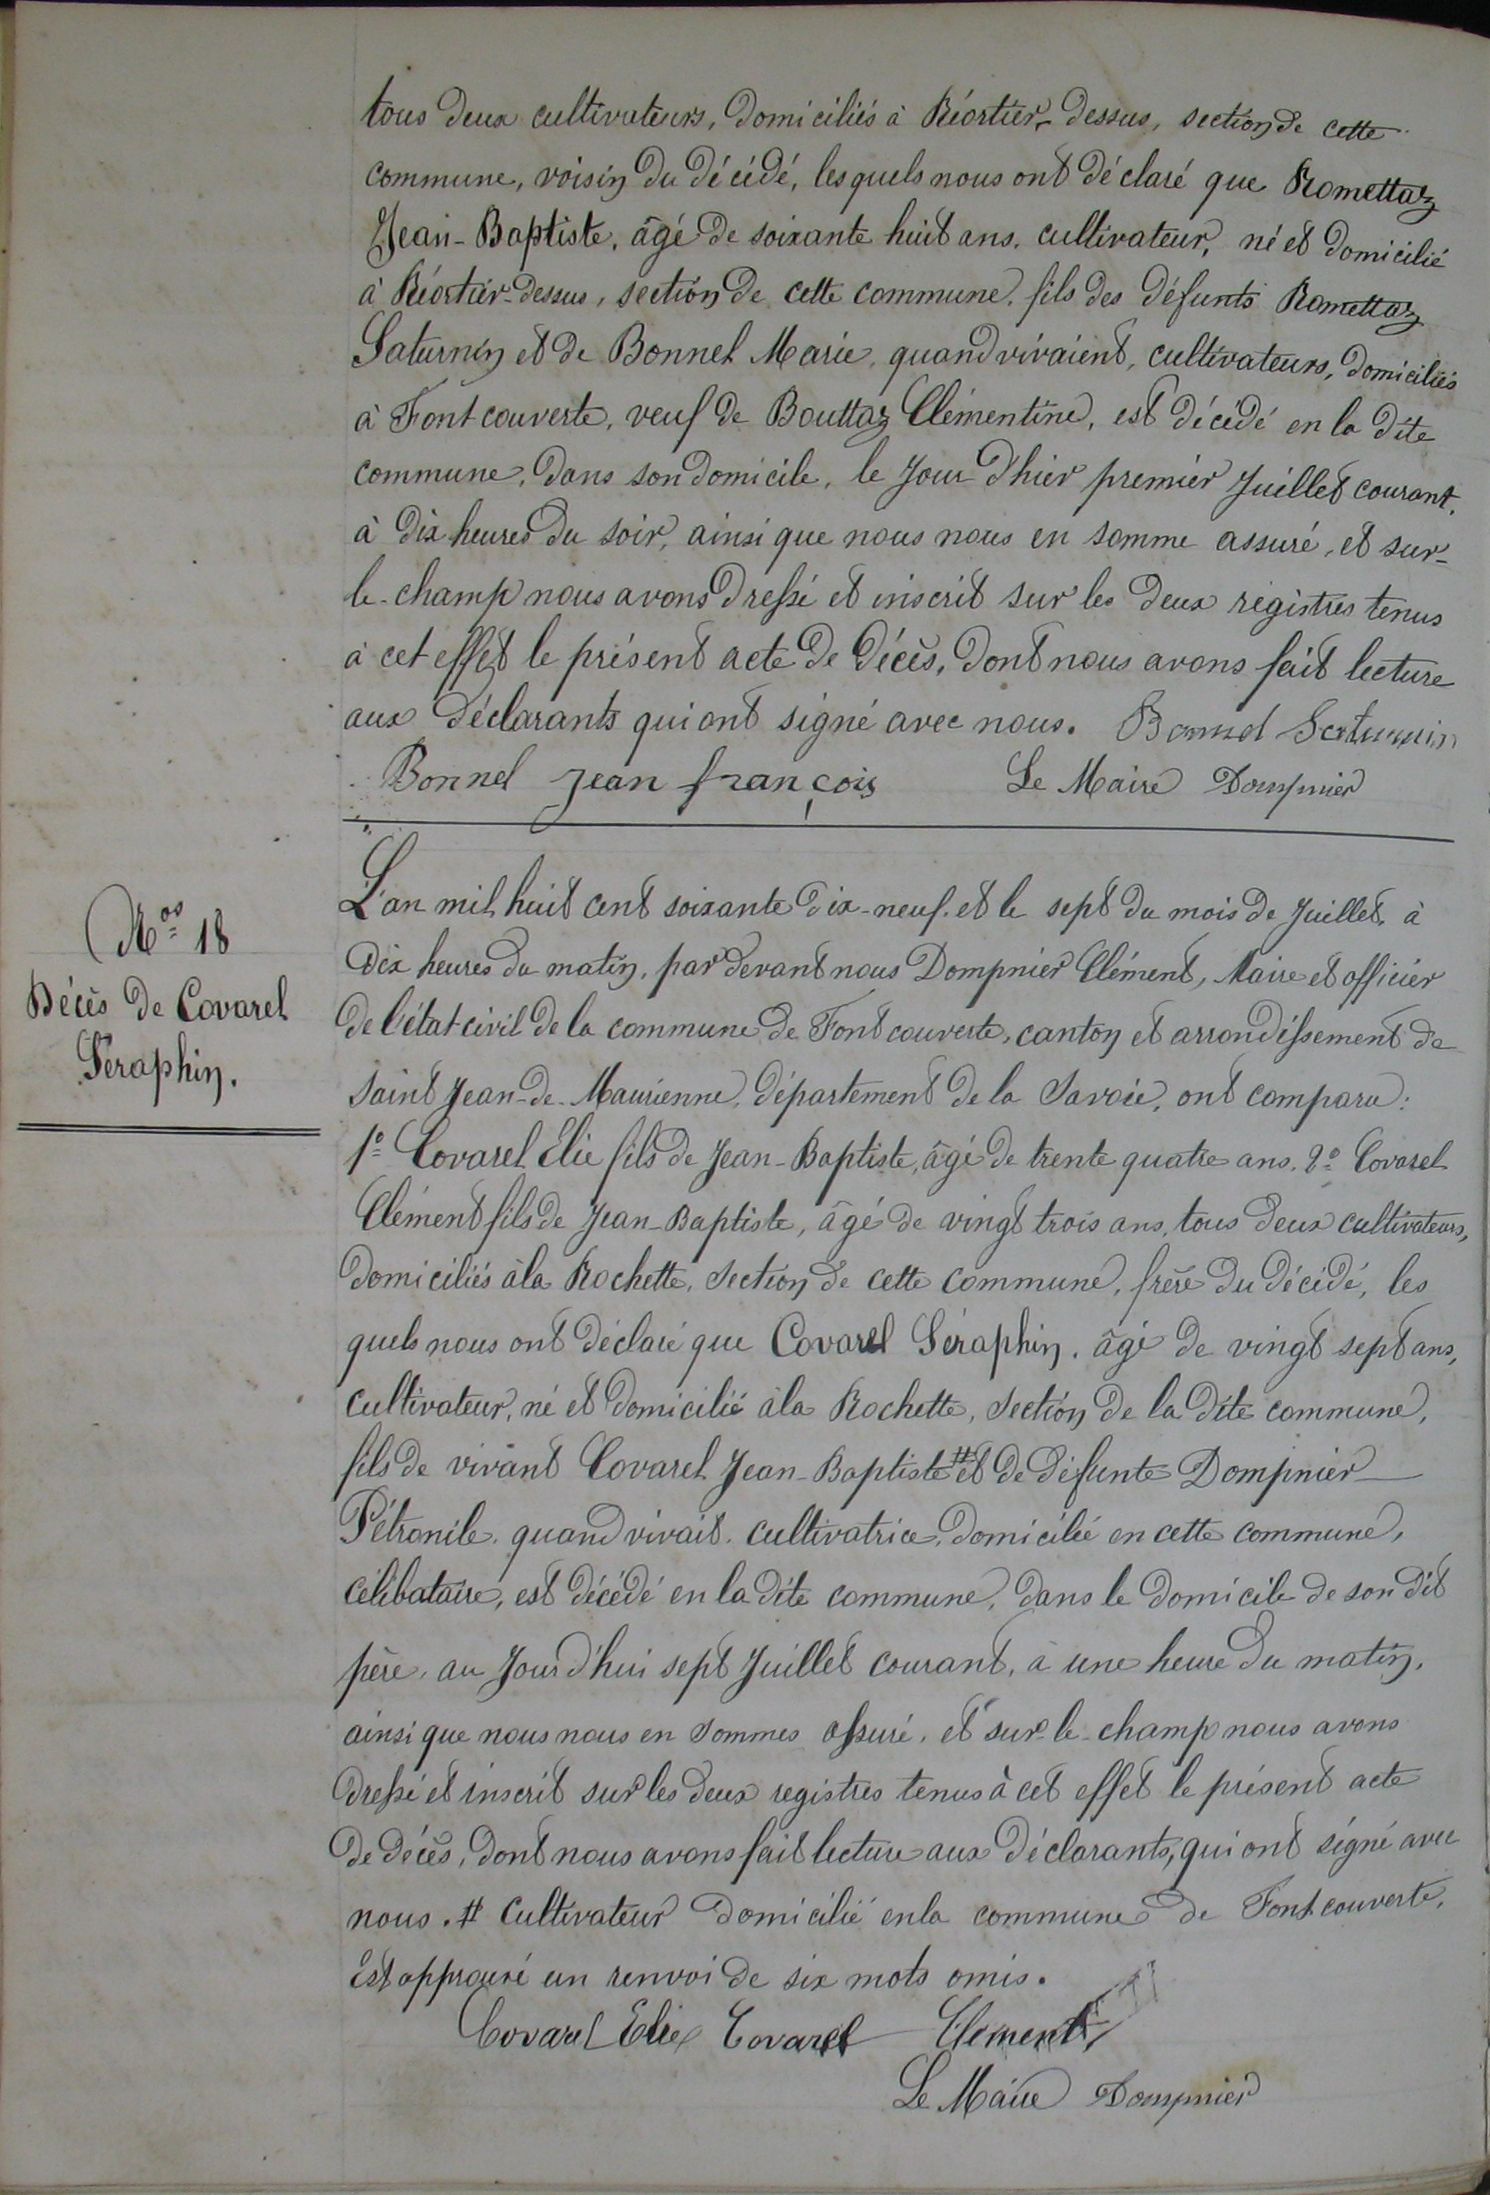 tous deux cultivateurs, domiciliés à Réortier-dessus, section de cette
commune, voisin du décédé, lesquels nous ont déclaré que Romettaz
Jean-Baptiste, âgé de soixante huit ans, cultivateur, né et domicilié
à Réortier-dessus, section de cette commune, fils des défunts Romettaz
Saturnin et de Bonnel Marie, quand vivaient, cultivateurs, domiciliés
à Fontcouverte, veuf de Bouttaz Clémentine, est décédé en la dite
commune, dans son domicile, le jour d'hier premier Juillet courant,
à dix heures du soir, ainsi que nous nous en somme assuré, et sur-
le-champ nous avons dressé et inscrit sur les deux registres tenus
à cet effet le présent acte de décès, dont nous avons fait lecture
aux déclarants qui ont signé avec nous. Bonnel Saturnin
Bonnel Jean françois Le Maire Dompnier
L'an mil huit cent soixante dix-neuf et le sept du mois de Juillet, à
Nos 18
dix heures du matin, par devant nous Dompnier Clément, Maire et officier
Décès de Covarel
de l'état civil de la commune de Fontcouverte, canton et arrondissement de
Séraphin.
Saint Jean-de-Maurienne, département de la Savoie, ont comparu :
1º Covarel Elie fils de Jean-Baptiste, âgé de trente quatre ans. 2º Covarel
Clément fils de Jean-Baptiste, âgé de vingt trois ans, tous deux cultivateurs,
domiciliés à la Rochette, section de cette commune, frère du décédé, les
quels nous ont déclaré que Covarel Séraphin, âgé de vingt sept ans,
cultivateur, né et domicilié à la Rochette, section de la dite commune,
fils de vivant Covarel Jean-Baptiste # et de défunte Dompnier
Pétronile, quand vivait, cultivatrice, domiciliée en cette commune,
célibataire, est décédé en la dite commune, dans le domicile de son dit
père, au Jourd'hui sept Juillet courant, à une heure du matin,
ainsi que nous nous en sommes assuré, et sur-le-champ nous avons
dressé et inscrit sur les deux registres tenus à cet effet le présent acte
de décès, dont nous avons fait lecture aux déclarants, qui ont signé avec
nous. # Cultivateur domicilié en la commune de Fontcouverte.
Est approuvé un renvoi de six mots omis.
Covarel Elie Covarel Clement
Le Maire Dompnier